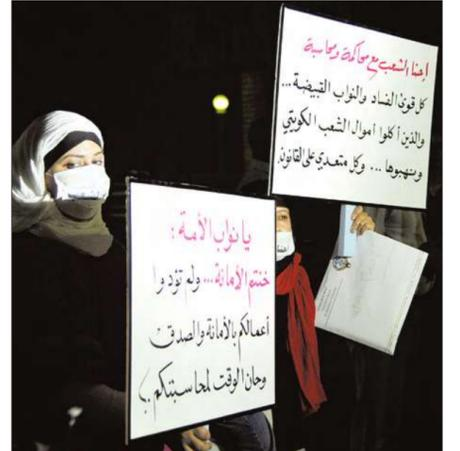 إحنا الشعب مع محاكمة ومحاسبة
كل قوى الفساد والنواب القبيضة...
والذين أكلوا أموال الشعب الكويتي
وينهبوها... وكل متعدي على القانون
يا نواب الأمة:
خنتم الأمانة... ولم تؤدوا
أعمالكم بالأمانة والصدق
وحان الوقت لمحاسبتكم..؟